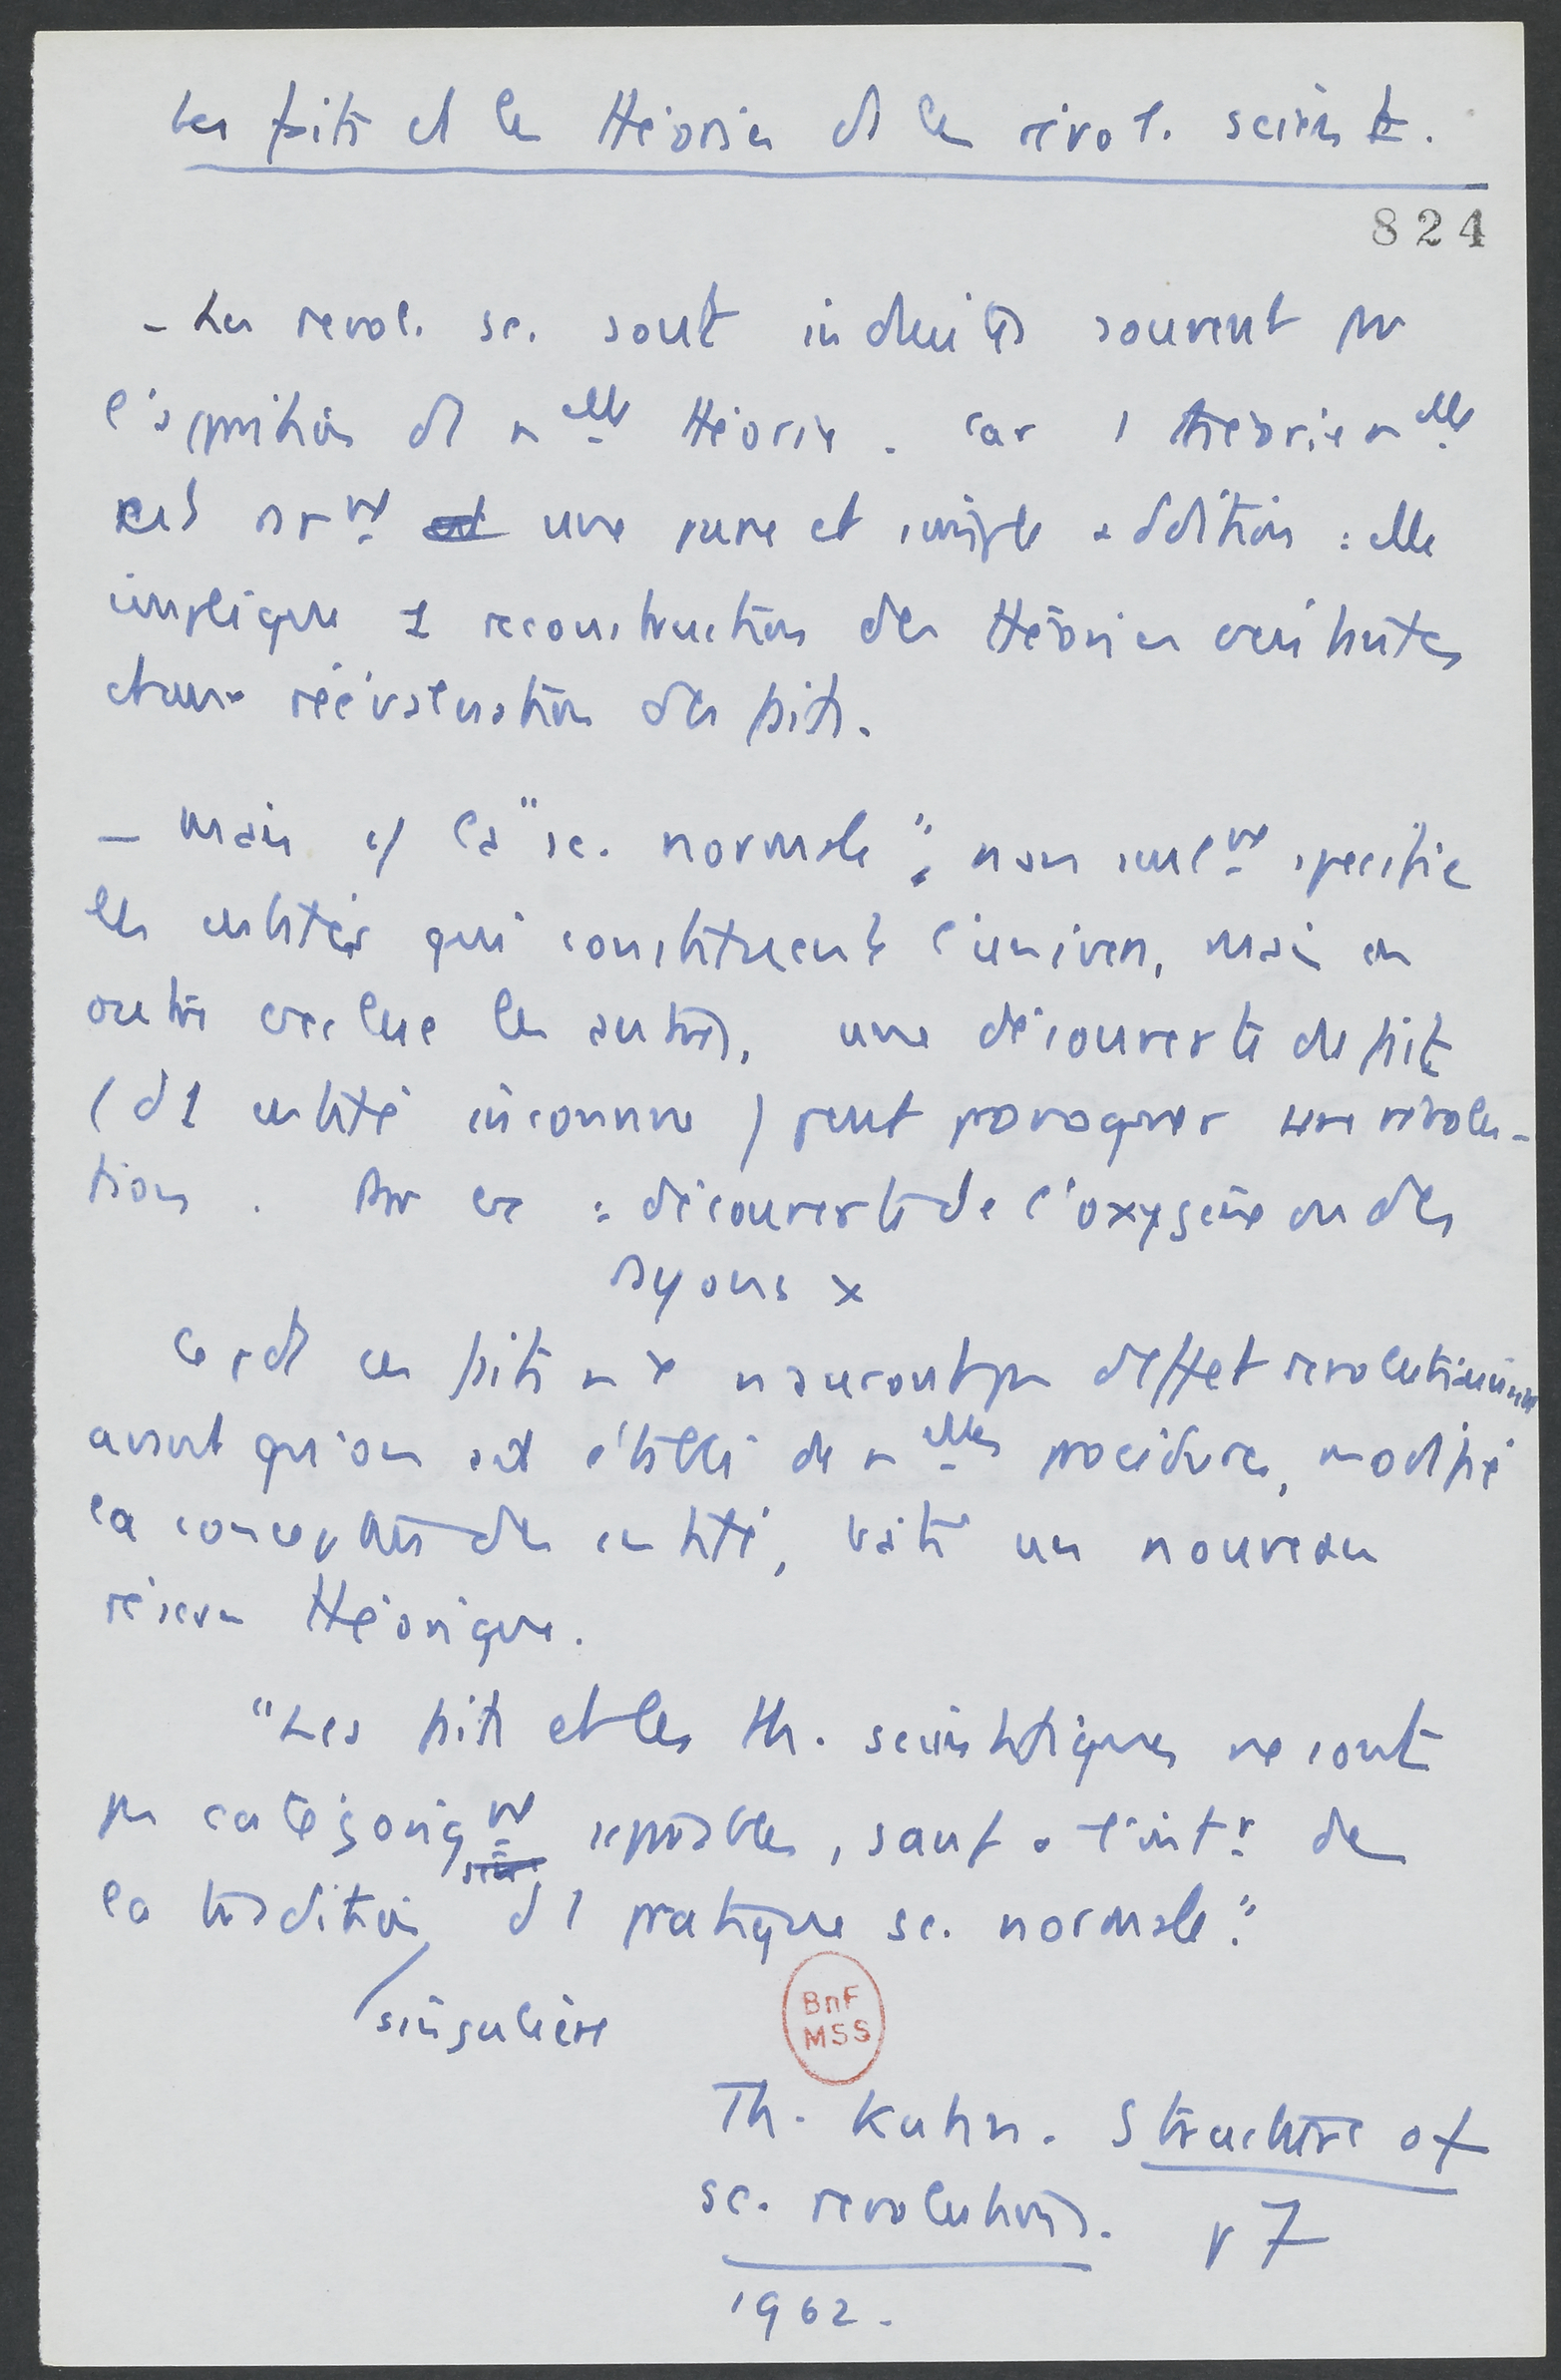 Les faits et les théories ds les révol. scient.
824
- Les révol. sc. sont induites souvent par
l'apparition ds nelle théorie. Car 1 théorie nelle
est rart une pure et simple addition : elle
implique 1 reconstruction des théories existantes
et une réévaluation des faits.
- Mais c/ la "sc. normale", non seulmt spécifie
les entités qui constituent l'univers, mais en
outre exclue les autres, une découverte de fait
(d'1 entité inconnue) peut provoquer une révolu-
tion. Par ex : découverte de l'oxygène ou des
rayons x
Cepdt ces faits nx n'auront pas d'effet révolutionnaire
avant qu'on ait établi de nelles procédures, modifié
la conception des entités, bâti un nouveau
réseau théorique.
"Les faits et les th. scientifiques ne sont
pas catégoriqmt séparables, sauf à l'intr de
la tradition singulière d'1 pratique sc. normale."
BnF
MSS
Th. Kuhn. Structure of
sc. revolutions. p 7
1962.